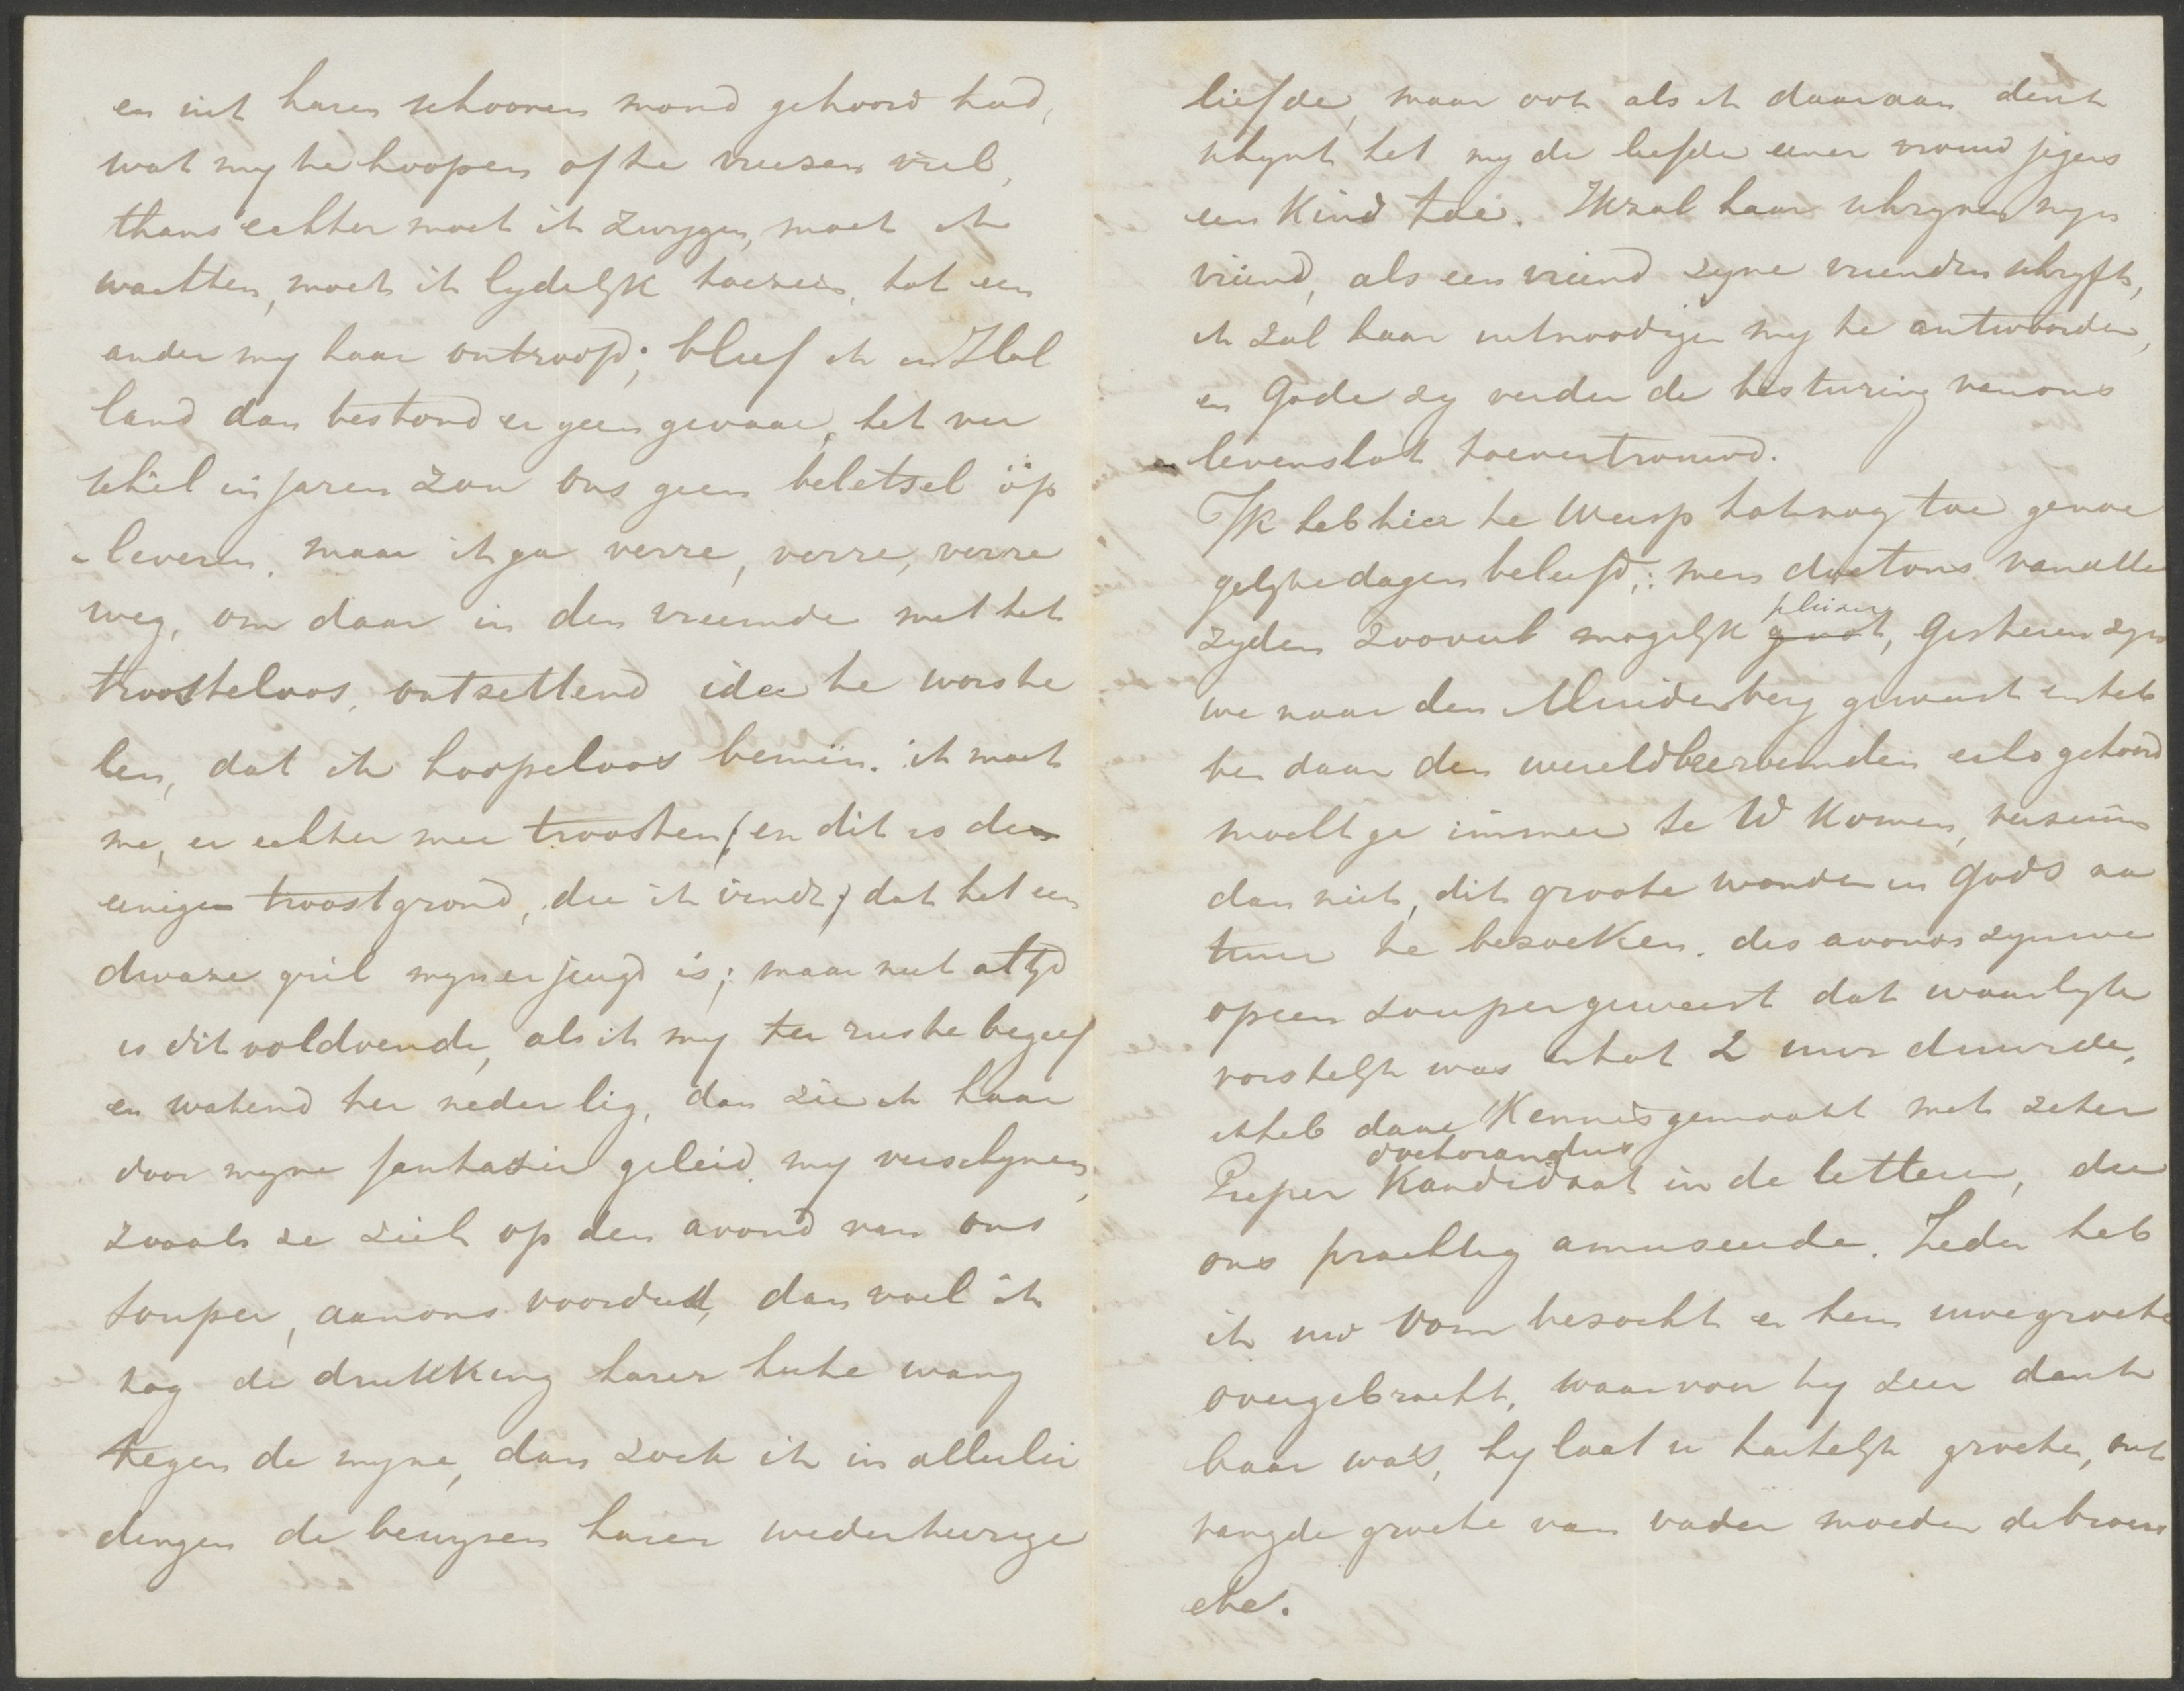 en uit haren schoonen mond gehoord had,
wat my te hoopen of te vreezen viel,
thans echter moet ik zwygen, moet ik
wachten, moet ik lydelyk toezien, tot een
ander my haar ontroofd; bleef ik in Hol
land dan bestond er geen gevaar, het ver
schil in jaren zou ons geen beletsel op
leveren, maar ik ga verre, verre, verre
weg, om daar in den vreemde met het
troosteloos, ontzettend idee te worste
len, dat ik hoopeloos bemin. ik moet
me, er echter mee troosten (en dit is den
eenigen troostgrond, die ik vindt) dat het een
dwaze gril myner jeugd is; maar niet altyd
is dit voldoende, als ik my ter ruste begeef
en wakend ter neder lig, dan zie ik haar
door myne fantazie geleid my verschynen,
zooals ze zich op den avond van ons
souper, aan ons voordeed, dan voel ik
nog de drukking harer lieve wang
tegen de myne, dan zoek ik in allerlei
dingen de bewyzen harer wederkeerige
liefde, maar ook als ik daaraan denk
schynt het my de liefde eener vrouw jegens
een Kind toe. Ik zal haar schryven myn
vriend, als een vriend zyne vrienden schryft,
ik zal haar uitnoodigen my te antwoorden,
en Gode zy verder de besturing van ons
levenslot toevertrouwd.
Ik heb hier te Weesp tot nog toe genoe
gelyke dagen beleefd; men doet ons van alle
zyden zooveel mogelyk plaisir
genot, Gisteren zyn
we naar den Muiderberg geweest en heb
ben daar den wereldberoemden echo gehoord
mocht ge immer te W komen, verzuim
dan niet, dit groote wonder in Gods na
tuur te bezoeken. des avonds zyn we
op een souper geweest dat waarlyk
vorstelyk was en tot 2 uur duurde,
ik heb daar Kennis gemaakt met zeker
doctorandus
Pieper Kandidaat in de letteren, die
ons prachtig amuseerde. Ieder heb
ik uw Oom bezocht en hem uwe groete
overgebracht, waarvoor hy zeer dank
baar was, hy laat u hartelyk groeten, ont
vang de groete van vader moeder de broers
etc.